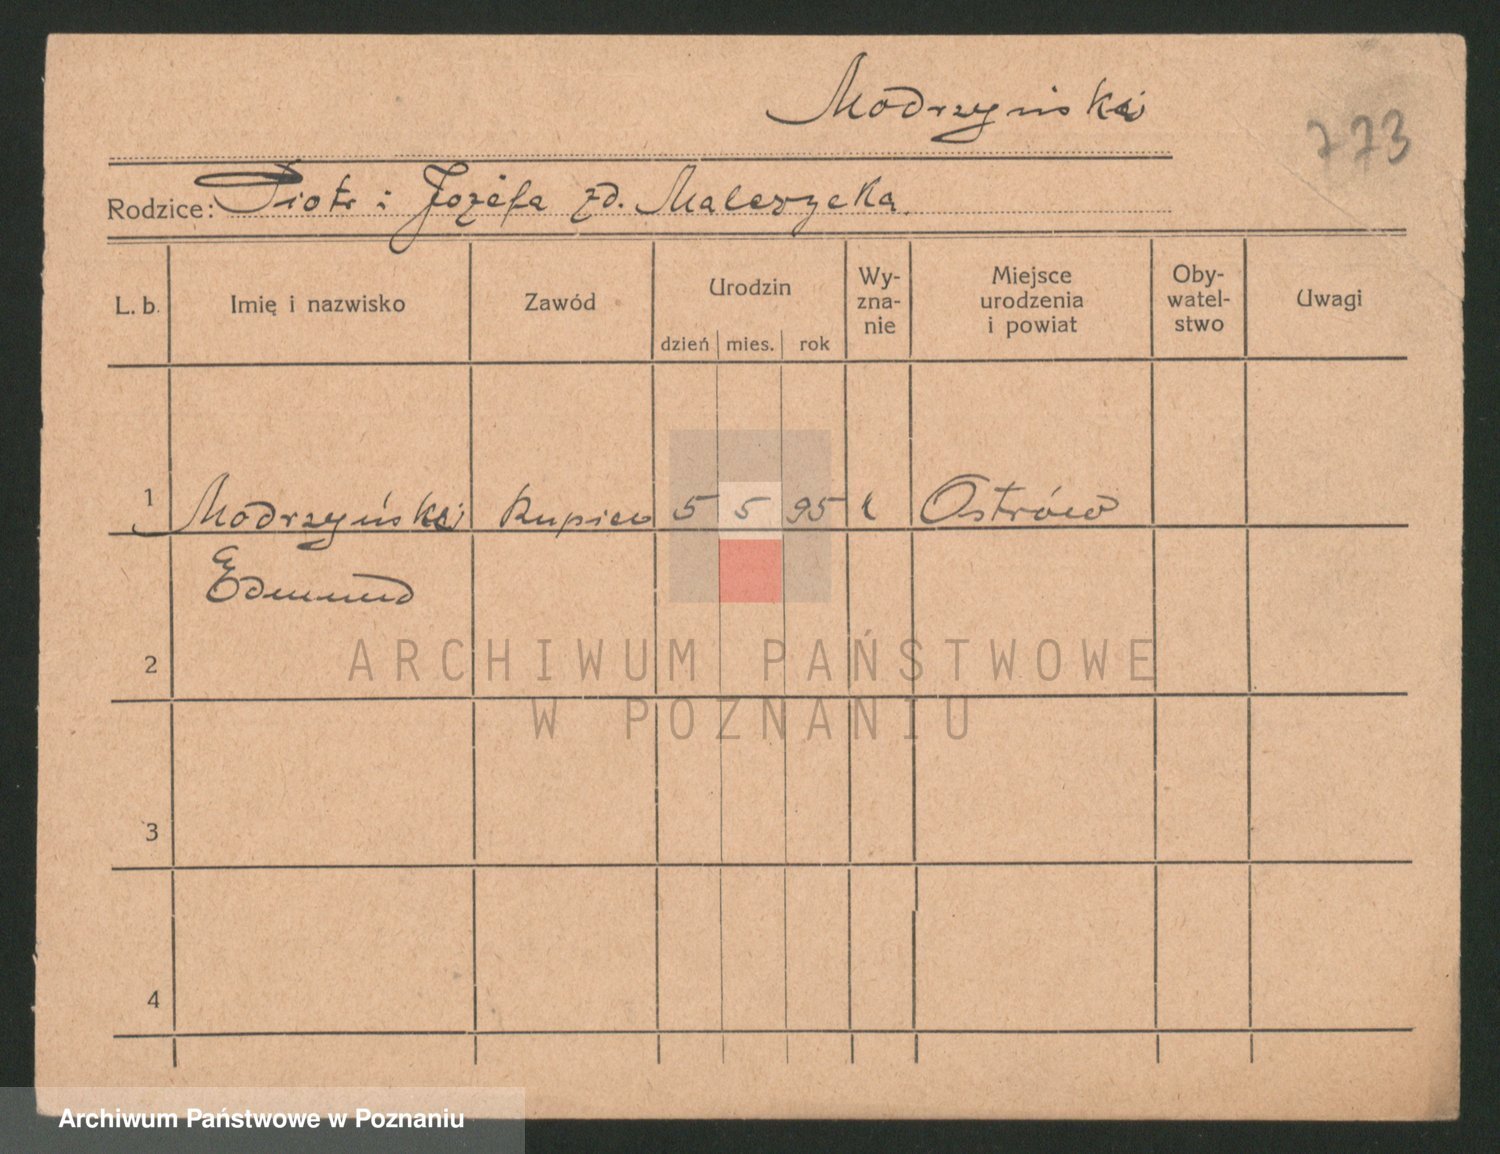 Modrzyński
773
Rodzice: Piotr i Józefa zd. Maleszycka
L. b. Imię i nazwisko Zawód Urodzin dzień mies. rok Wy-zna-nie Miejsce urodzenia i powiat Oby-watel-stwo Uwagi
1 Modrzyński kupiec 5 5 95 Ostrów
Edmund
2
ARCHIWUM PAŃSTWOWE
W POZNANIU
3
4
Archiwum Państwowe w Poznaniu